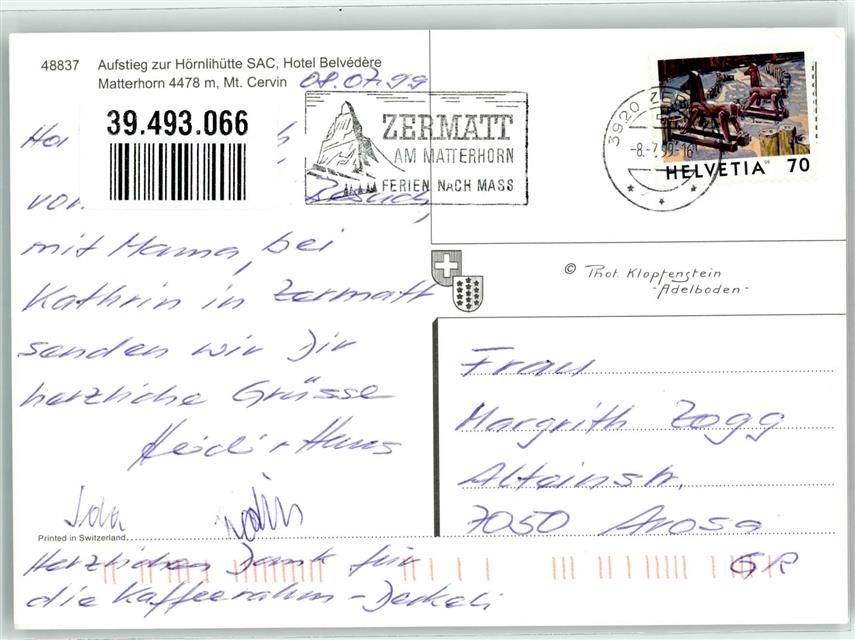 48837 Aufstieg zur Hörnlihütte SAC, Hotel Belvédère
Matterhorn 4478 m, Mt. Cervin
08.07.99
39.493.066
ZERMATT
AM MATTERHORN
FERIEN NACH MASS
3920 ZER
-8.-7.99-16
HELVETIA 70
Besuch,
mit Mama, bei
Kathrin in Zermatt
senden wir Dir
herzliche Grüsse
Heidi + Hans
Printed in Switzerland
Herzlichen Dank für
die Kaffeerahm-Deckeli
© Phot. Klopfenstein
-Adelboden-
Frau
Margrith Zogg
Alteinstr.
7050 Arosa
GR